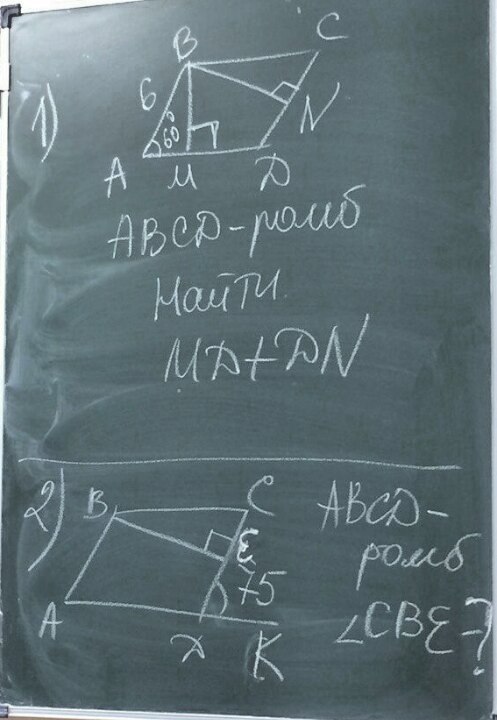 1)
B
C
6
60°
N
A
M
D
ABCD-ромб
Найти
MD+DN
2)
B
C
E
75
A
D
K
ABCD-
ромб
∠CBE-?